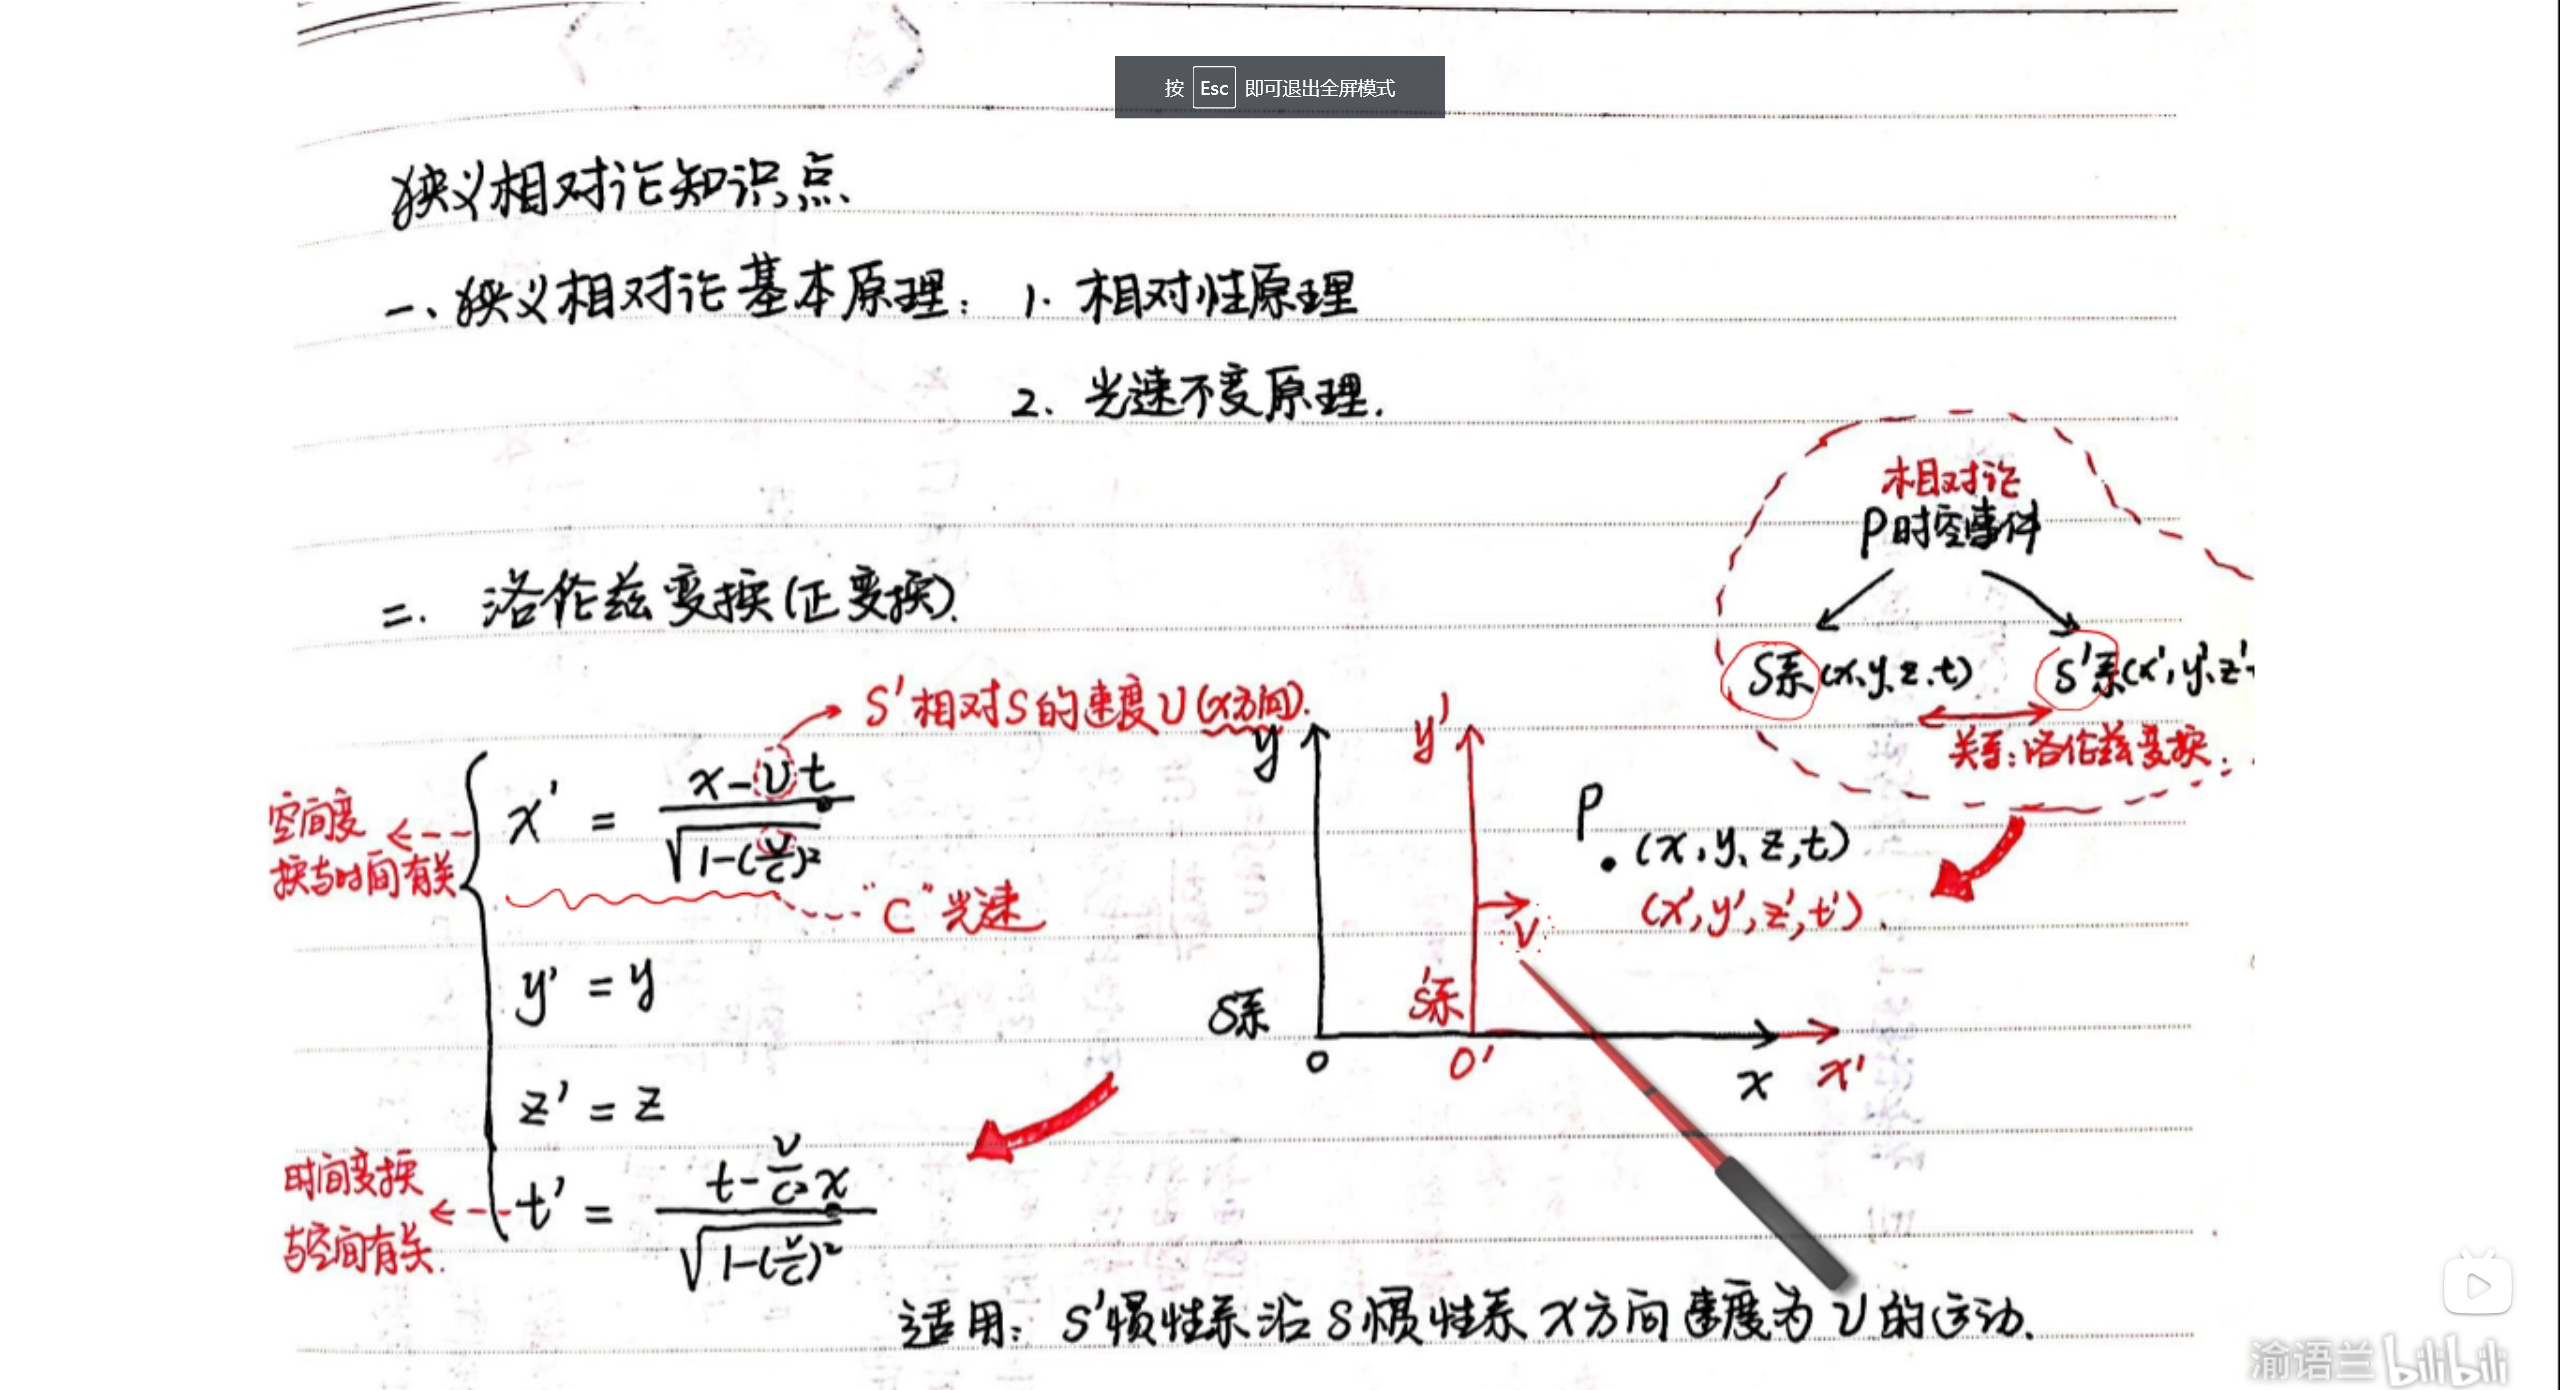 按 Esc 即可退出全屏模式
狭义相对论知识点、
一、狭义相对论基本原理： 1. 相对性原理
2. 光速不变原理.
相对论
P时空事件
二. 洛伦兹变换(正变换).
S系(x,y,z,t) S'系(x',y',z'
关系:洛伦兹变换.
S'相对S的速度v(x方向).
空间变
换与时间有关
x' = (x-vt)/√(1-(v/c)²)
"C"光速
y' = y
z' = z
时间变换
与空间有关.
t' = (t-(v/c²)x)/√(1-(v/c)²)
y y'
P
.(x,y,z,t)
(x',y',z',t').
v
S系 S'系
O O' x x'
适用: S'惯性系沿S惯性系x方向速度为v的运动.
渝语兰 bilibili